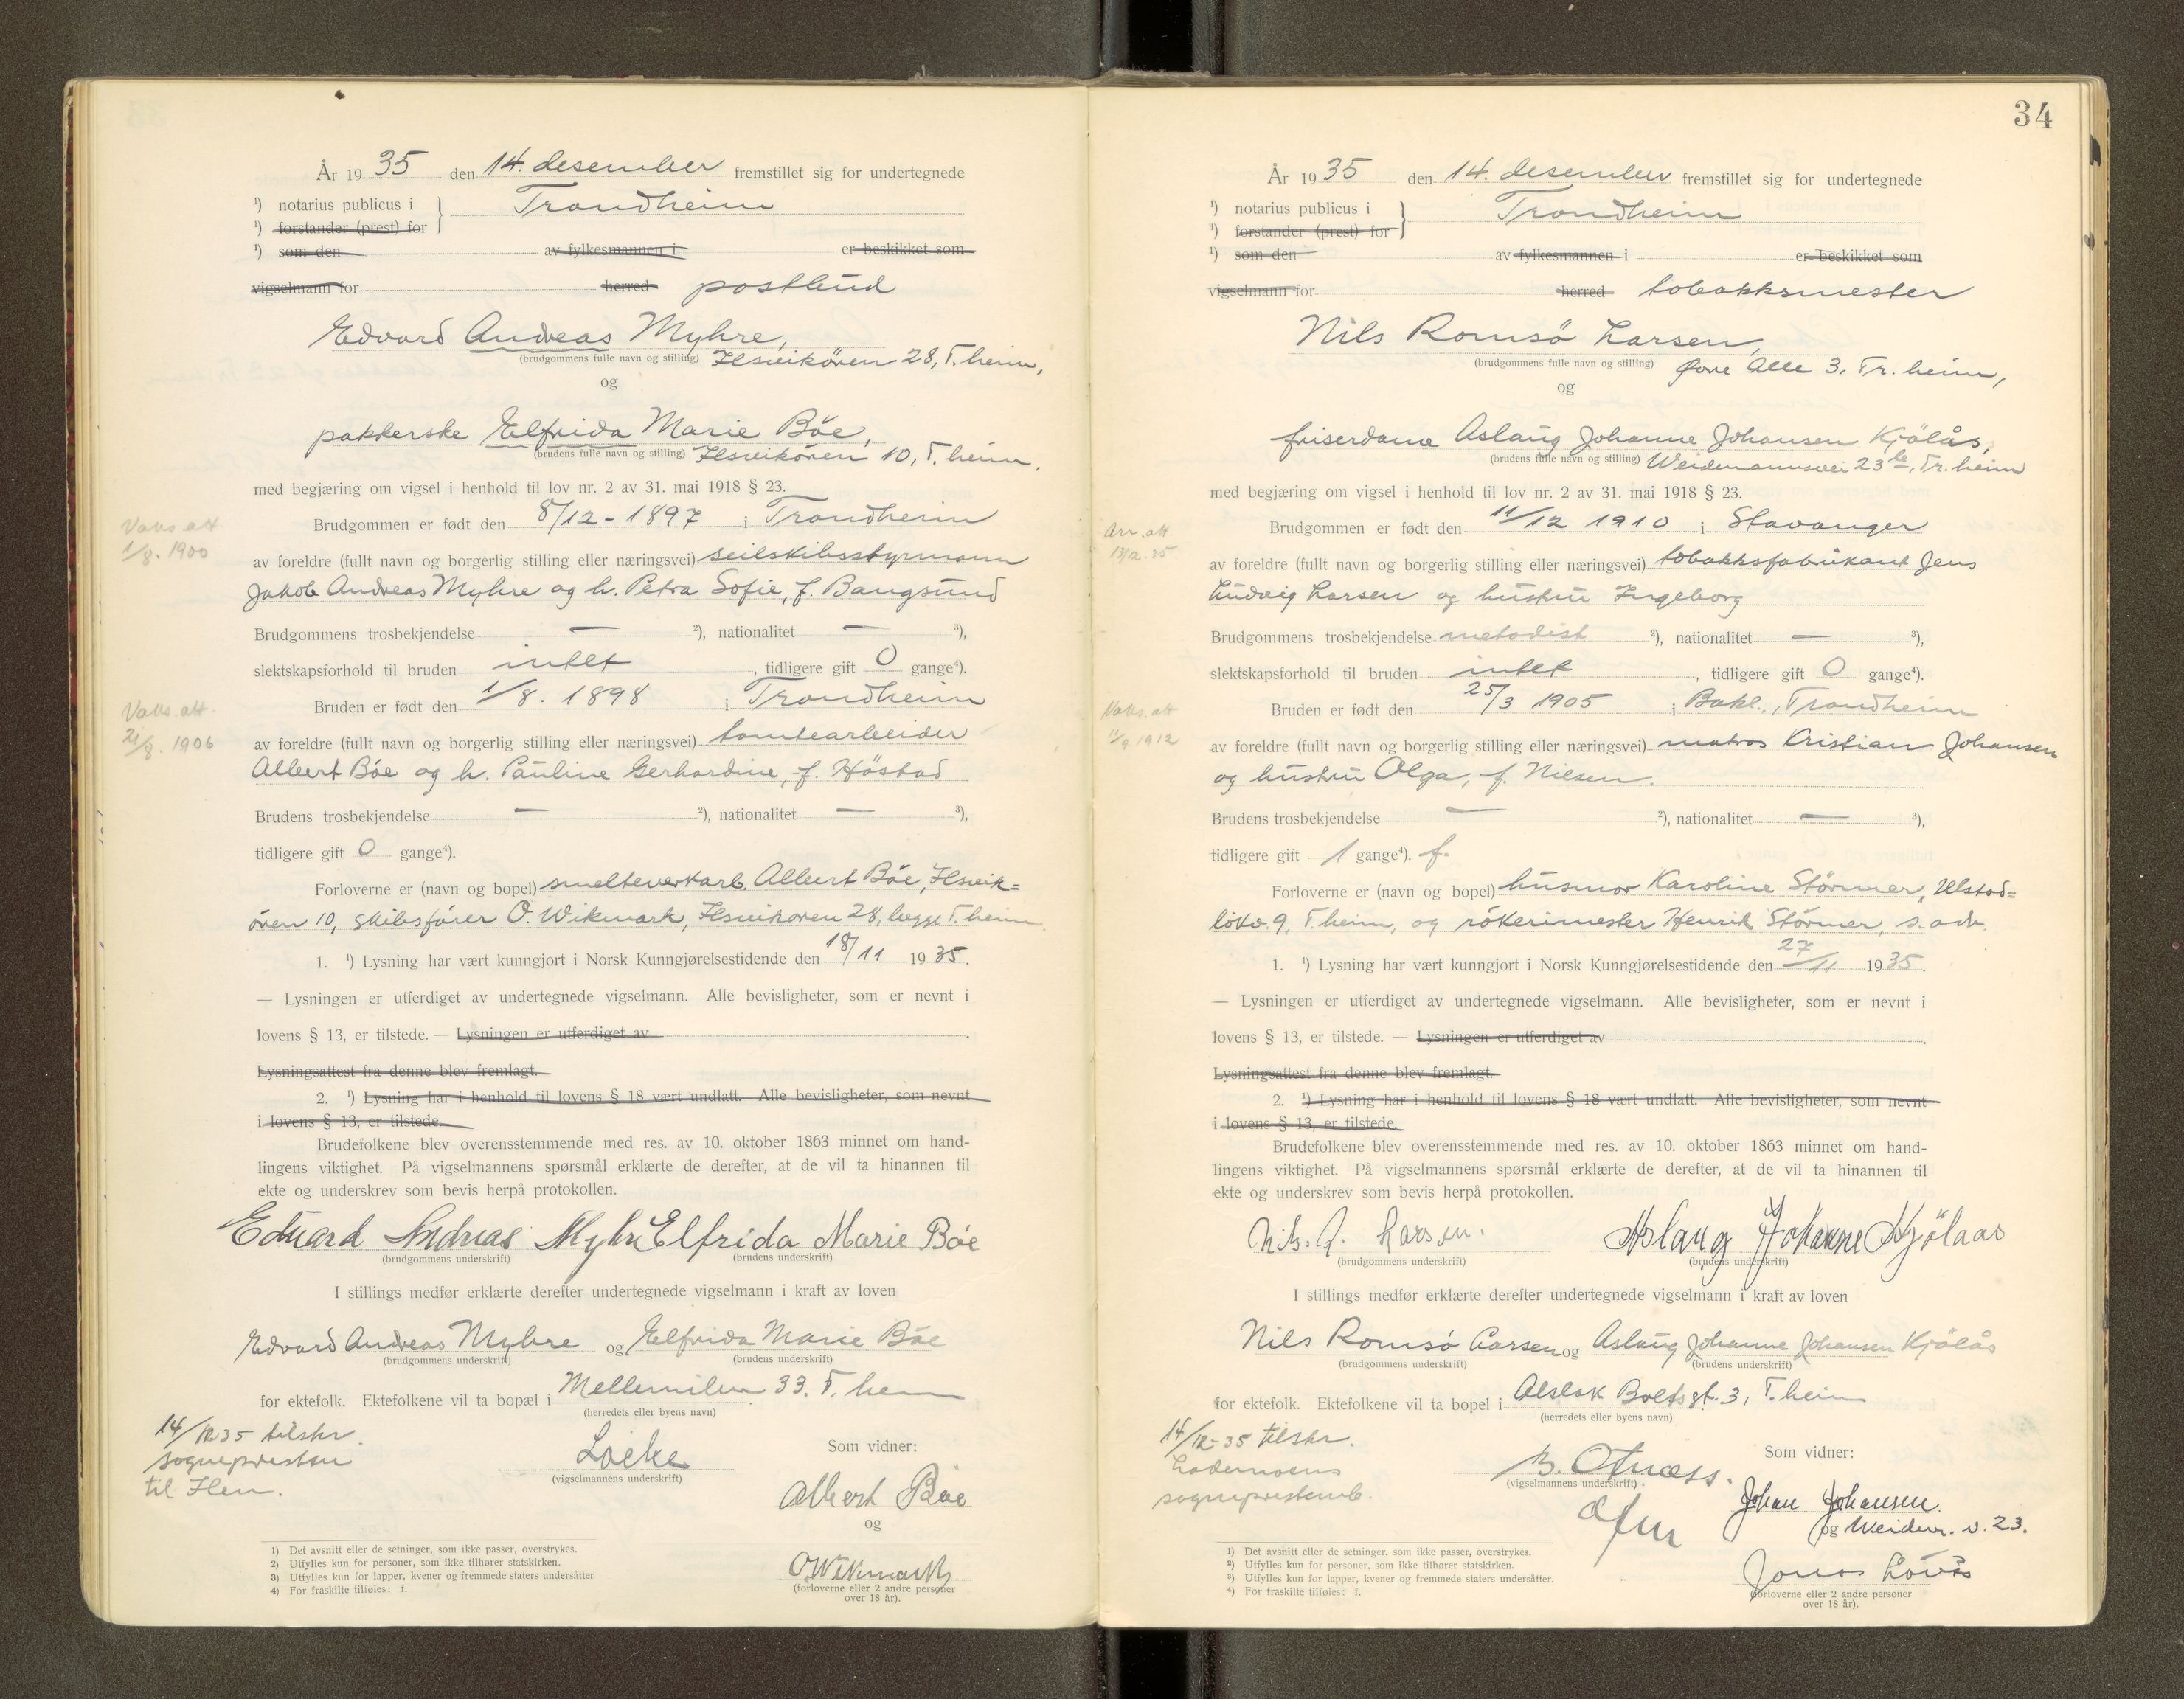 År 1935 den 14. desember fremstillet sig for undertegnede
¹) notarius publicus i Trondheim
¹) forstander (prest) for
¹) som den av fylkesmannen i er beskikket som
vigselmann for herred postbud
Edvard Andreas Myhre,
(brudgommens fulle navn og stilling) Ilsvikören 28, T.heim,
og
pakkerske Elfrida Marie Böe,
(brudens fulle navn og stilling) Ilsvikören 10, T.heim.
med begjæring om vigsel i henhold til lov nr. 2 av 31. mai 1918 § 23.
Vaks. att
1/8. 1900
Brudgommen er født den 8/12 - 1897 i Trondheim
av foreldre (fullt navn og borgerlig stilling eller næringsvei) seilskibsstyrmann
Jakob Andreas Myhre og h. Petra Sofie, f. Bangsund
Brudgommens trosbekjendelse — ²), nationalitet — ³),
slektskapsforhold til bruden intet, tidligere gift 0 gange⁴).
Vaks. att.
21/8. 1906
Bruden er født den 1/8. 1898 i Trondheim
av foreldre (fullt navn og borgerlig stilling eller næringsvei) tomtearbeider
Albert Böe og h. Pauline Gerhardine, f. Höstad
Brudens trosbekjendelse — ²), nationalitet — ³),
tidligere gift 0 gange⁴).
Forloverne er (navn og bopel) smelteverkarb. Albert Böe, Ilsvik=
ören 10, skibsfører O. Wikmark, Ilsvikoren 28, begge T.heim.
1. ¹) Lysning har vært kunngjort i Norsk Kunngjørelsestidende den 18/11 1935.
— Lysningen er utferdiget av undertegnede vigselmann. Alle bevisligheter, som er nevnt i
lovens § 13, er tilstede. — Lysningen er utferdiget av
Lysningsattest fra denne blev fremlagt.
2. ¹) Lysning har i henhold til lovens § 18 vært undlatt. Alle bevisligheter, som nevnt
i lovens § 13, er tilstede.
Brudefolkene blev overensstemmende med res. av 10. oktober 1863 minnet om hand-
lingens viktighet. På vigselmannens spørsmål erklærte de derefter, at de vil ta hinannen til
ekte og underskrev som bevis herpå protokollen.
Edvard Andreas Myhre Elfrida Marie Böe
(brudgommens underskrift) (brudens underskrift)
I stillings medfør erklærte derefter undertegnede vigselmann i kraft av loven
Edvard Andreas Myhre og Elfrida Marie Böe
(brudgommens underskrift) (brudens underskrift)
for ektefolk. Ektefolkene vil ta bopæl i Mellemilen 33. T.heim
(herredets eller byens navn)
14/12-35 tilskr.
sognepresten
til Ilen.
Som vidner:
(vigselmannens underskrift)
Albert Böe
og
O. Wikmark
(forloverne eller 2 andre personer
over 18 år).
1) Det avsnitt eller de setninger, som ikke passer, overstrykes.
2) Utfylles kun for personer, som ikke tilhører statskirken.
3) Utfylles kun for lapper, kvener og fremmede staters undersåtter
4) For fraskilte tilføies: f.
34
År 1935 den 14. desember fremstillet sig for undertegnede
¹) notarius publicus i Trondheim
¹) forstander (prest) for
¹) som den av fylkesmannen i er beskikket som
vigselmann for herred tobakksmester
Nils Romsö Larsen,
(brudgommens fulle navn og stilling) Øvre Alle 3. Tr.heim,
og
friserdame Aslaug Johanne Johansen Kjölås,
(brudens fulle navn og stilling) Weidemannsvei 23 b, Tr.heim
med begjæring om vigsel i henhold til lov nr. 2 av 31. mai 1918 § 23.
Brudgommen er født den 11/12 1910 i Stavanger
av foreldre (fullt navn og borgerlig stilling eller næringsvei) tobakksfabrikant Jens
Ludvig Larsen og hustru Ingeborg
Brudgommens trosbekjendelse metodist ²), nationalitet — ³),
slektskapsforhold til bruden intet, tidligere gift 0 gange⁴).
Vaks. att
11/9 1912
Bruden er født den 25/3 1905 i Bakl., Trondheim
av foreldre (fullt navn og borgerlig stilling eller næringsvei) matros Kristian Johansen
og hustru Olga, f. Nilsen.
Brudens trosbekjendelse — ²), nationalitet — ³),
tidligere gift 1 gange⁴). f.
Forloverne er (navn og bopel) husmor Karoline Störmer, Ulstad=
lökv. 9, T.heim, og rökerimester Henrik Störmer, s. adr.
1. ¹) Lysning har vært kunngjort i Norsk Kunngjørelsestidende den 27/11 1935.
— Lysningen er utferdiget av undertegnede vigselmann. Alle bevisligheter, som er nevnt i
lovens § 13, er tilstede. — Lysningen er utferdiget av
Lysningsattest fra denne blev fremlagt.
2. ¹) Lysning har i henhold til lovens § 18 vært undlatt. Alle bevisligheter, som nevnt
i lovens § 13, er tilstede.
Brudefolkene blev overensstemmende med res. av 10. oktober 1863 minnet om hand-
lingens viktighet. På vigselmannens spørsmål erklærte de derefter, at de vil ta hinannen til
ekte og underskrev som bevis herpå protokollen.
Nils. R. Larsen. Aslaug Johanne Kjölaas
(brudgommens underskrift) (brudens underskrift)
I stillings medfør erklærte derefter undertegnede vigselmann i kraft av loven
Nils Romsö Larsen og Aslaug Johanne Johansen Kjölås
(brudgommens underskrift) (brudens underskrift)
for ektefolk. Ektefolkene vil ta bopel i Aslak Boltsgt. 3, T.heim
(herredets eller byens navn)
14/12-35 tilskr.
Lademoens
sogneprestemb.
Som vidner:
(vigselmannens underskrift).
Johan Johansen.
og Weidem. v. 23.
Jonas
(forloverne eller 2 andre personer
over 18 år).
¹) Det avsnitt eller de setninger, som ikke passer, overstrykes.
²) Utfylles kun for personer, som ikke tilhører statskirken.
³) Utfylles kun for lapper, kvener og fremmede staters undersåtter.
⁴) For fraskilte tilføies: f.